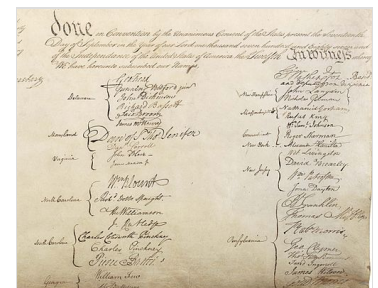 done in Convention by the Unanimous Consent of the States present the Seventeenth
Day of September in the Year of our Lord one thousand seven hundred and Eighty seven and
of the Independence of the United States of America the Twelfth In Witness
We have hereunto subscribed our Names,
Delaware
Geo: Read
Gunning Bedford jun
John Dickinson
Richard Bassett
Jaco: Broom
Maryland
James McHenry
Dan of St Thos Jenifer
Danl Carroll
Virginia
John Blair
James Madison Jr.
North Carolina
Wm Blount
Richd Dobbs Spaight
Hu Williamson
South Carolina
J. Rutledge
Charles Cotesworth Pinckney
Charles Pinckney
Pierce Butler
Georgia
William Few
G Washington Presidt
and deputy from Virginia
New Hampshire
John Langdon
Nicholas Gilman
Massachusetts
Nathaniel Gorham
Rufus King
Connecticut
Wm Saml Johnson
Roger Sherman
New York
Alexander Hamilton
New Jersey
Wil: Livingston
David Brearley
Wm Paterson
Jona: Dayton
Pensylvania
B Franklin
Thomas Mifflin
Robt Morris
Geo. Clymer
Thos FitzSimons
Jared Ingersoll
James Wilson